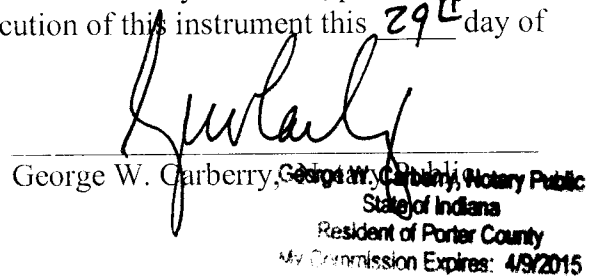 cution of this instrument this 29th day of
George W. Carberry, Notary Public
George W. Carberry, Notary Public
State of Indiana
Resident of Porter County
My Commission Expires: 4/9/2015